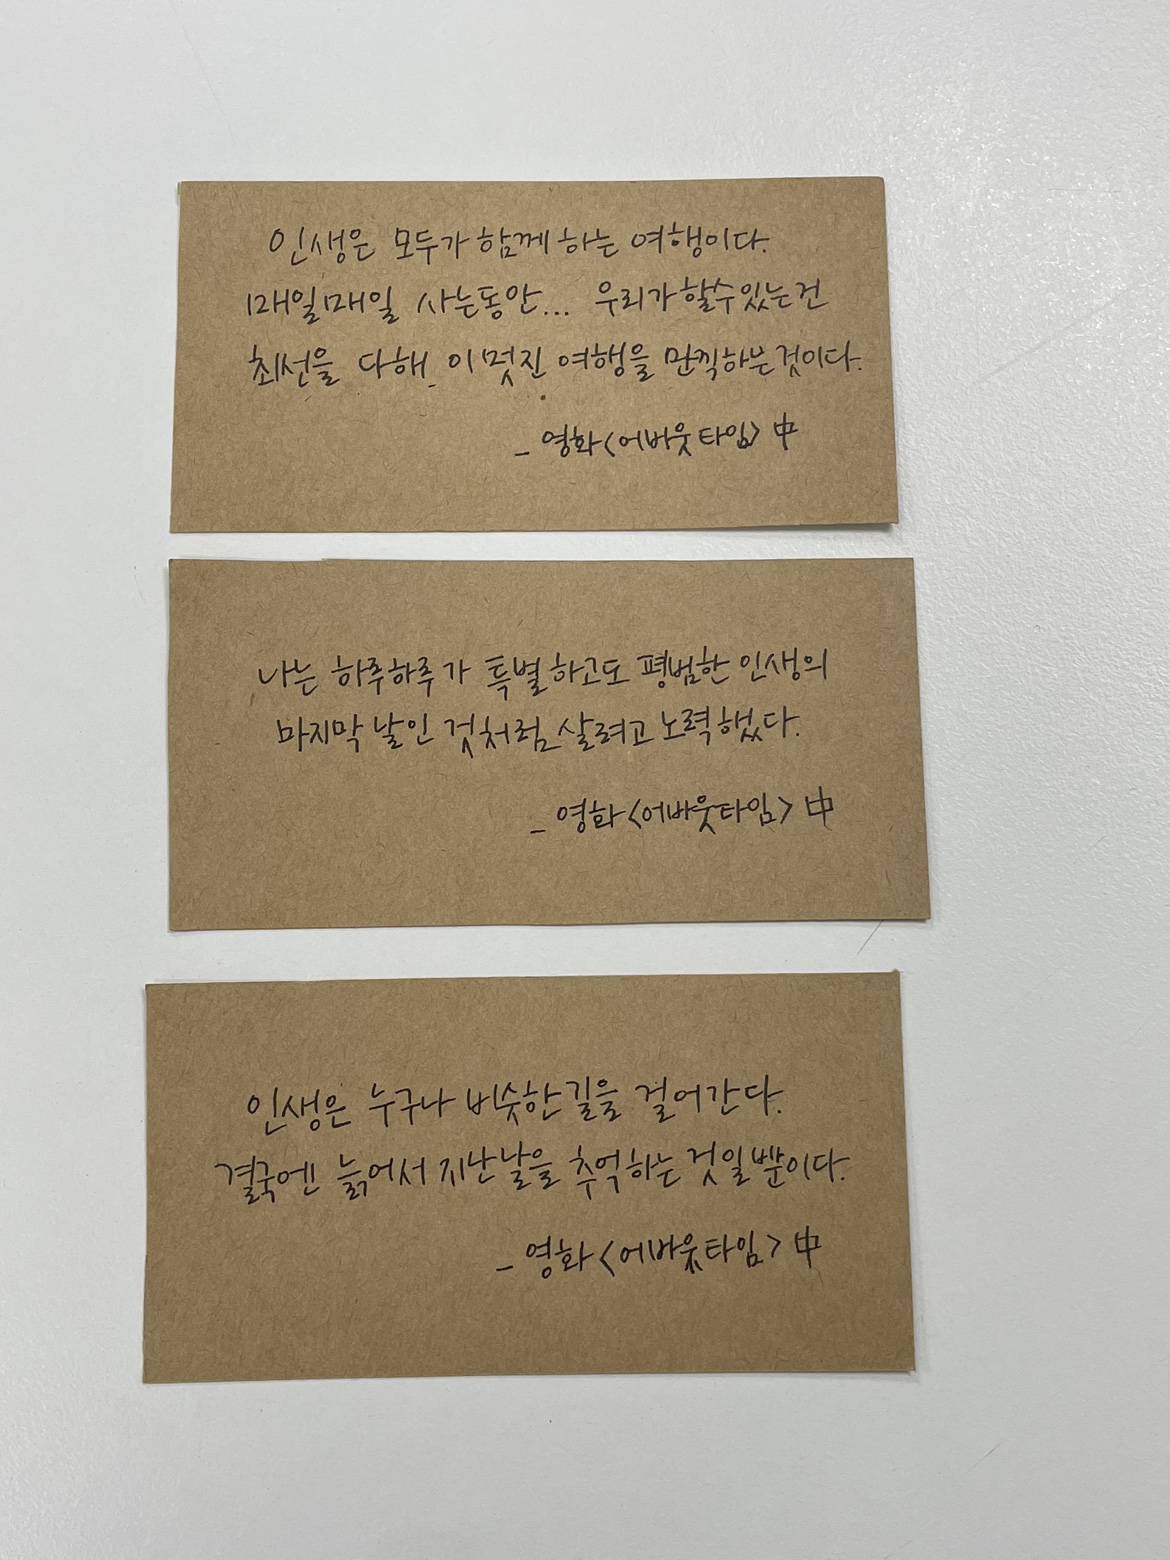 인생은 모두가 함께 하는 여행이다.
매일매일 사는동안... 우리가 할수있는건
최선을 다해 이 멋진 여행을 만끽하는것이다.
_ 영화<어바웃타임> 中
나는 하루하루가 특별하고도 평범한 인생의
마지막 날인 것처럼 살려고 노력했다.
_ 영화<어바웃타임> 中
인생은 누구나 비슷한 길을 걸어간다.
결국엔 늙어서 지난날을 추억하는 것일뿐이다.
_ 영화<어바웃타임> 中